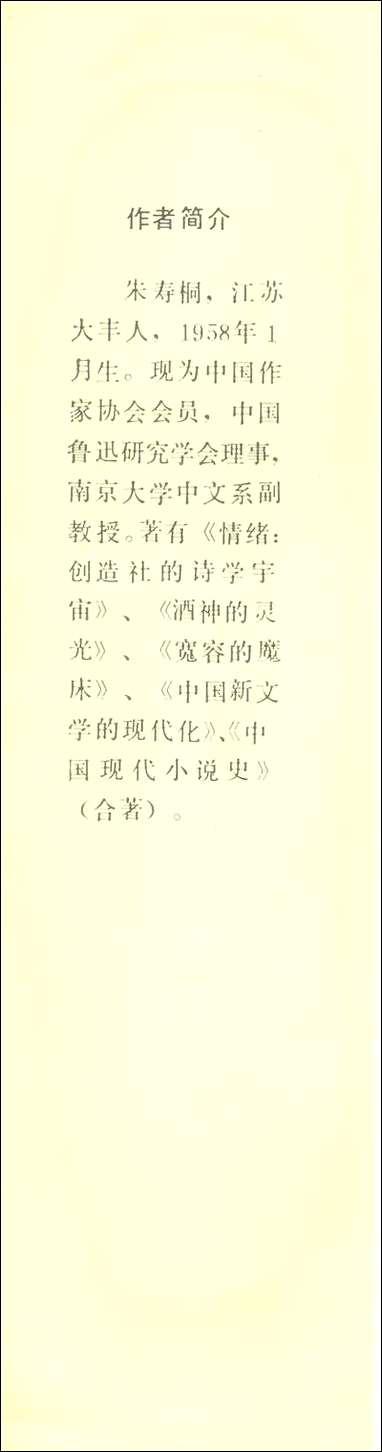 作者简介
朱寿桐，江苏
大丰人，1958年1
月生。现为中国作
家协会会员，中国
鲁迅研究学会理事，
南京大学中文系副
教授。著有《情绪：
创造社的诗学宇
宙》、《酒神的灵
光》、《宽容的魔
床》、《中国新文
学的现代化》、《中
国现代小说史》
（合著）。